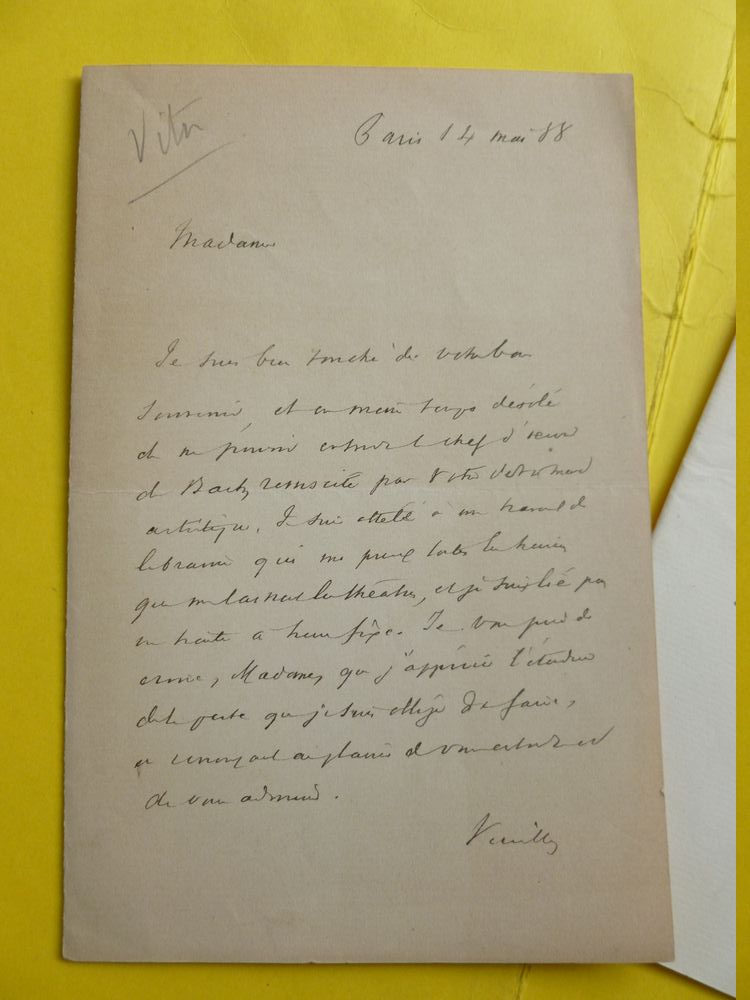 Vitu
Paris 14 mai 88
Madame
Je suis bien touché de votre bon
souvenir, et en même temps désolé
de ne pouvoir entendre le chef d'œuvre
de Bach, ressuscité par votre dévouement
artistique. Je suis attelé à un travail de
librairie qui me prend toutes les heures
que me laissent les théâtres, et je suis lié par
un traité à heure fixe. Je vous prie de
croire, Madame, que j'apprécie l'étendue
de la perte que je suis obligé de faire,
en renonçant au plaisir de vous entendre et
de vous admirer.